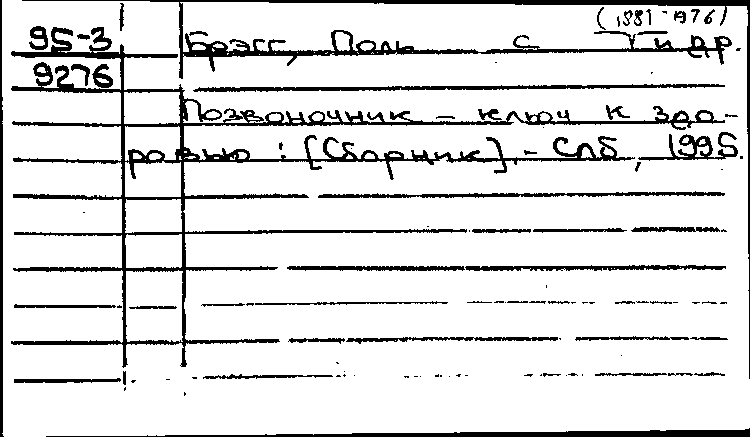 (1881-1976)
95-3 Брэгг, Поль С и др.
9276
Позвоночник - ключ к здо-
ровью : [Сборник]. - Спб, 1995.